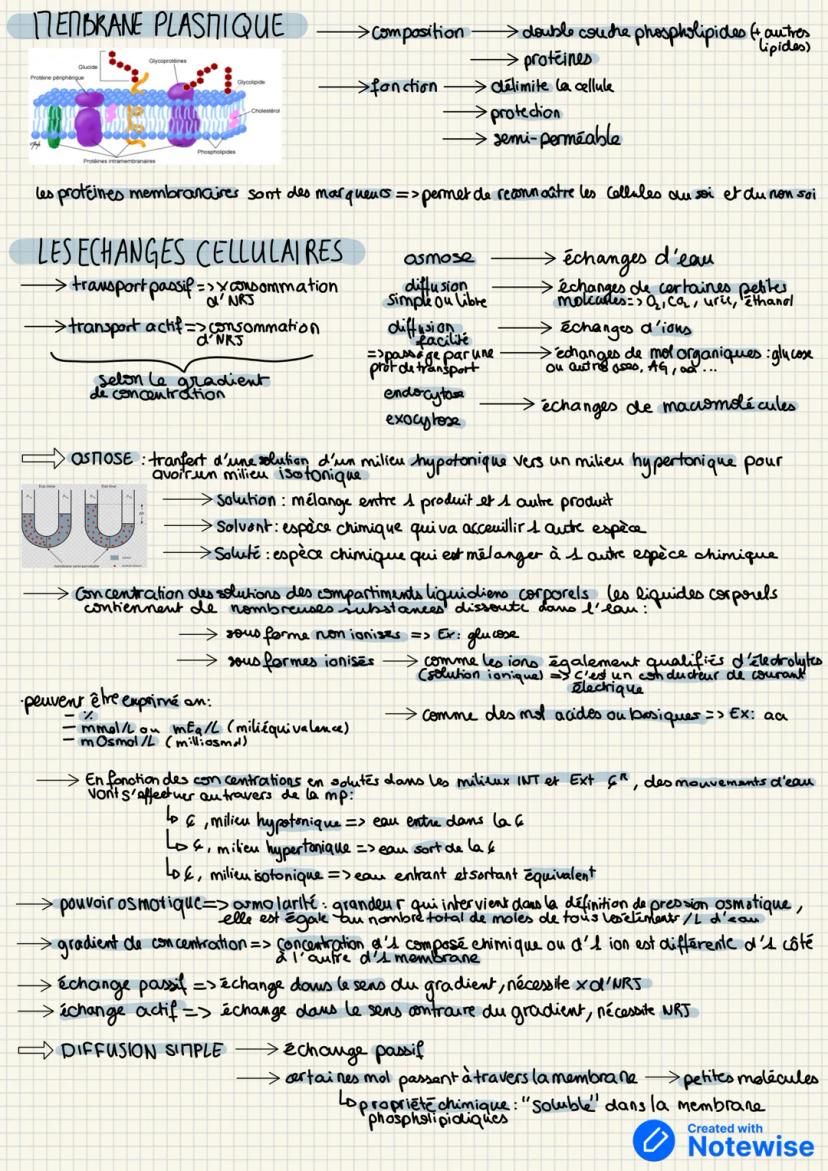 MEMBRANE PLASMIQUE
→ composition → double couche phospholipides (+ autres lipides)
→ protéines
→ fonction → délimite la cellule
→ protection
→ semi-perméable
Glucide
Glycoprotéines
Protéine périphérique
Glycolipide
Cholestérol
Protéines intramembranaires
Phospholipides
les protéines membranaires sont des marqueurs => permet de reconnaître les cellules du soi et du non soi
LES ECHANGES CELLULAIRES
→ transport passif => x consommation d'NRJ
→ transport actif => consommation d'NRJ
selon le gradient de concentration
osmose → échanges d'eau
diffusion simple ou libre → échanges de certaines petites molécules => O2, CO2, urée, éthanol
diffusion facilité → échanges d'ions
=> passage par une prot de transport → échanges de mol organiques : glucose ou autres oses, AG, aa ...
endocytose
exocytose → échanges de macromolécules
⇒ OSMOSE : tranfert d'une solution d'un milieu hypotonique vers un milieu hypertonique pour avoir un milieu isotonique
→ Solution : mélange entre 1 produit et 1 autre produit
→ Solvant : espèce chimique qui va acceuillir 1 autre espèce
→ Soluté : espèce chimique qui est mélanger à 1 autre espèce chimique
→ Concentration des solutions des compartiments liquidiens corporels les liquides corporels
contiennent de nombreuses substances dissoute dans l'eau :
→ sous forme non ionisés => Ex : glucose
→ sous formes ionisés → comme les ions également qualifiés d'électrolytes
(solution ionique) => c'est un conducteur de courant
électrique
→ comme des mol acides ou basiques => Ex : aa
·peuvent être exprimé en :
– %
– mmol/L ou mEq/L (miliéquivalence)
– mOsmol/L (milliosmol)
→ En fonction des concentrations en solutés dans les milieux INT et Ext ₵R, des mouvements d'eau
vont s'effectuer au travers de la mp :
↳ ₵, milieu hypotonique => eau entre dans la ₵
↳ ₵, milieu hypertonique => eau sort de la ₵
↳ ₵, milieu isotonique => eau entrant et sortant équivalent
→ pouvoir osmotique => osmolarité : grandeur qui intervient dans la définition de pression osmotique,
elle est égale au nombre total de moles de tous les éléments /L d'eau
→ gradient de concentration => concentration d'1 composé chimique ou d'1 ion est différente d'1 côté
à l'autre d'1 membrane
→ échange passif => échange dans le sens du gradient, nécessite x d'NRJ
→ échange actif => échange dans le sens contraire du gradient, nécessite NRJ
⇒ DIFFUSION SIMPLE → échange passif
→ certaines mol passent à travers la membrane → petites molécules
↳ propriété chimique : "soluble" dans la membrane
phospholipidiques
Created with
Notewise